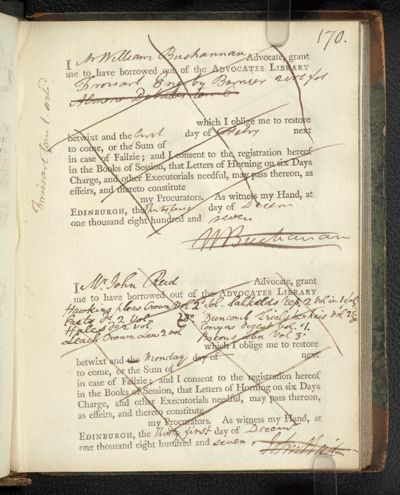 170.
I Mr William Buchannan Advocate, grant
me to have borrowed out of the ADVOCATES LIBRARY
Froisart Eng by Berner 2
which I oblige me to restore
betwixt and the first day of Febry next
to come, or the Sum of
in case of Failzie; and I consent to the registration hereof
in the Books of Session, that Letters of Horning on six Days
Charge, and other Executorials needful, may pass thereon, as
effeirs, and thereto constitute
my Procurators. As witness my Hand, at
EDINBURGH, the day of Decem
one thousand eight hundred and seven
W Buchanan
Froissart
I Mr John Reid Advocate, grant
me to have borrowed out of the ADVOCATES LIBRARY
Hawkins pleas Crown Salkelds Rep 2 Vol in 1
2 Vol Duncomb Trials
Hales 2 vol Comyns Digest Vol. 1.
Leach Crown 2 vol Bacons Vol 3.
which I oblige me to restore
betwixt and the Monday day of next
to come, or the Sum of
in case of Failzie; and I consent to the registration hereof
in the Books of Session, that Letters of Horning on six Days
Charge, and other Executorials needful, may pass thereon,
as effeirs, and thereto constitute
my Procurators. As witness my Hand, at
EDINBURGH, the thirty first day of Decemr
one thousand eight hundred and seven